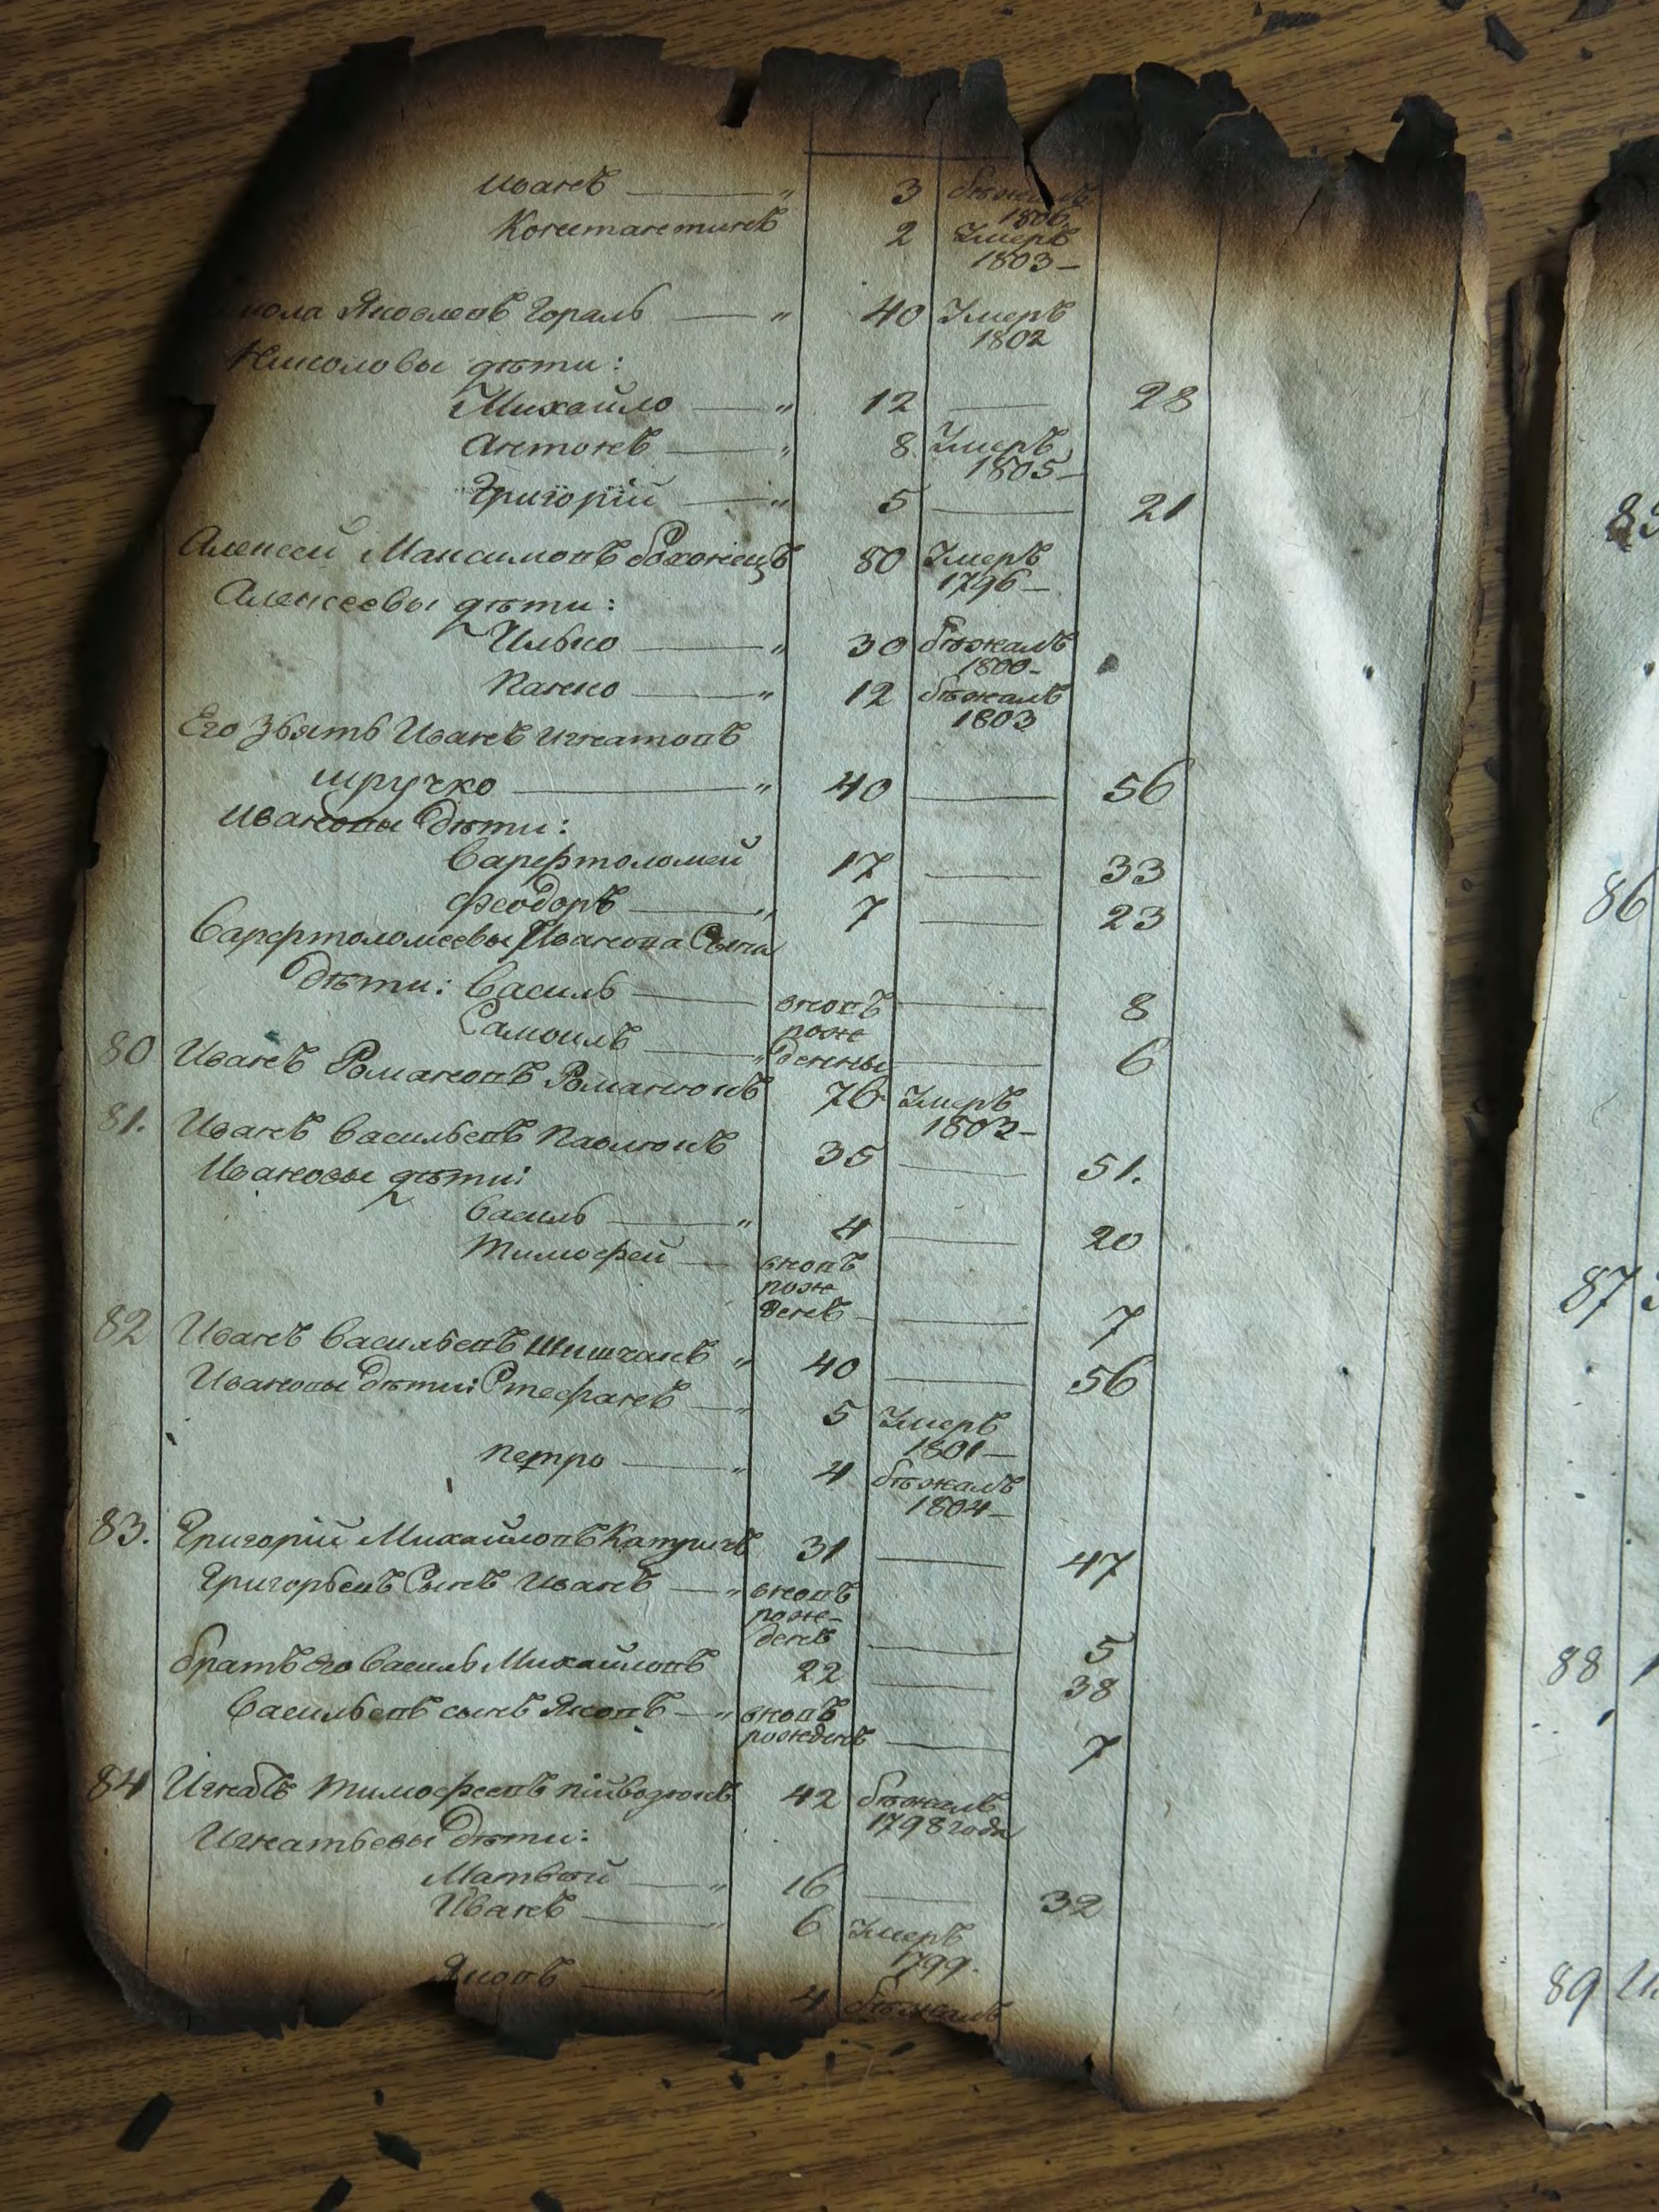 Иванъ — " 3 бѣжалъ
1806
Константинъ 2 Умеръ
1803 —
кола Яковлевъ Гораль — " 40 Умеръ
1802
Николовы дѣти:
Михайло — " 12 — 28
Антонъ — " 8 Умеръ
1805 —
Григорій — " 5 — 21
Алексей Максимовъ 80 Умеръ
1796 —
Алексеевы дѣти:
Илько — " 30 бѣжалъ
1800 —
Панко — " 12 бѣжалъ
1803
Его Зять Иванъ Игнатовъ
шручко — " 40 — 56
Ивановы дѣти:
Варфтоломей 17 — 33
Феодоръ — " 7 — 23
Варфтоломеевы Иванова Сына
дѣти: Василь — вновь — 8
рож
Самоилъ — " денны — 6
80 Иванъ Романовъ Романюкъ 76 Умеръ
1803 —
81. Иванъ Васильевъ Павлюкъ 35 — 51.
Ивановы дѣти:
Василь — " 4 — 20
Тимофей — вновь
рож
денъ — 7
82 Иванъ Васильевъ Шишчакъ " 40 — 56
Ивановы дѣти: Стефанъ — " 5 Умеръ
1801 —
Петро — " 4 бѣжалъ
1804 —
83. Григорій Михайловъ 31 — 47
Григорьевъ Сынъ Иванъ — " вновь
рож-
денъ — 5
братъ его Василь Михайловъ 22 — 38
Васильевъ сынъ Яковъ — " вновь
рожденъ — 7
84 Игнатъ Тимофеевъ 42 бѣжалъ
1798 года
Игнатьевы дѣти:
Матвѣй — " 16 — 32
Иванъ — " 6 Умеръ
1799.
Яковъ — " 4 бѣжалъ
86
87
88
89